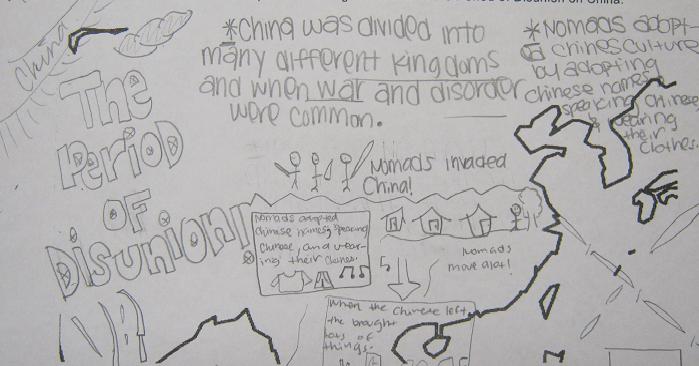 China
*China was divided into
many different kingdoms
and when war and disorder
were common.
*Nomads adopt
chines culture
by adopting
chinese names
speaking chinese
& wearing
their
clothes.
The
Period
OF
Disunion!
Nomads invaded
China!
Nomads adopted
chinese names, speaking
chinese, and wear-
ing their clothes.
Nomads
move alot!
When the Chinese left
the brought
lots of
things.